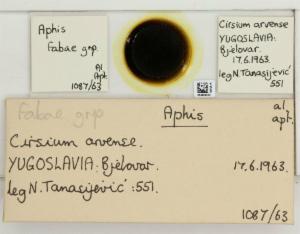 Aphis
Fabae grp.
al
Apt.
1087/63
Cirsium arvense
YUGOSLAVIA:
Bjelovar.
17.6.1963.
leg N. Tanasijević
551
Fabae grp
Aphis
al
apt.
Cirsium arvense.
YUGOSLAVIA: Bjelovar.
17.6.1963.
leg N. Tanasijević :551.
1087/63